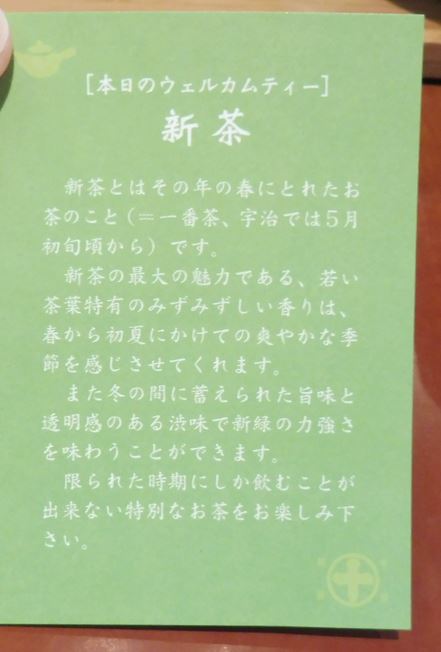 [本日のウェルカムティー]
新茶
新茶とはその年の春にとれたお
茶のこと(＝一番茶、宇治では5月
初旬頃から）です。
新茶の最大の魅力である、若い
茶葉特有のみずみずしい香りは、
春から初夏にかけての爽やかな季
節を感じさせてくれます。
また冬の間に蓄えられた旨味と
透明感のある渋味で新緑の力強さ
を味わうことができます。
限られた時期にしか飲むことが
出来ない特別なお茶をお楽しみ下
さい。